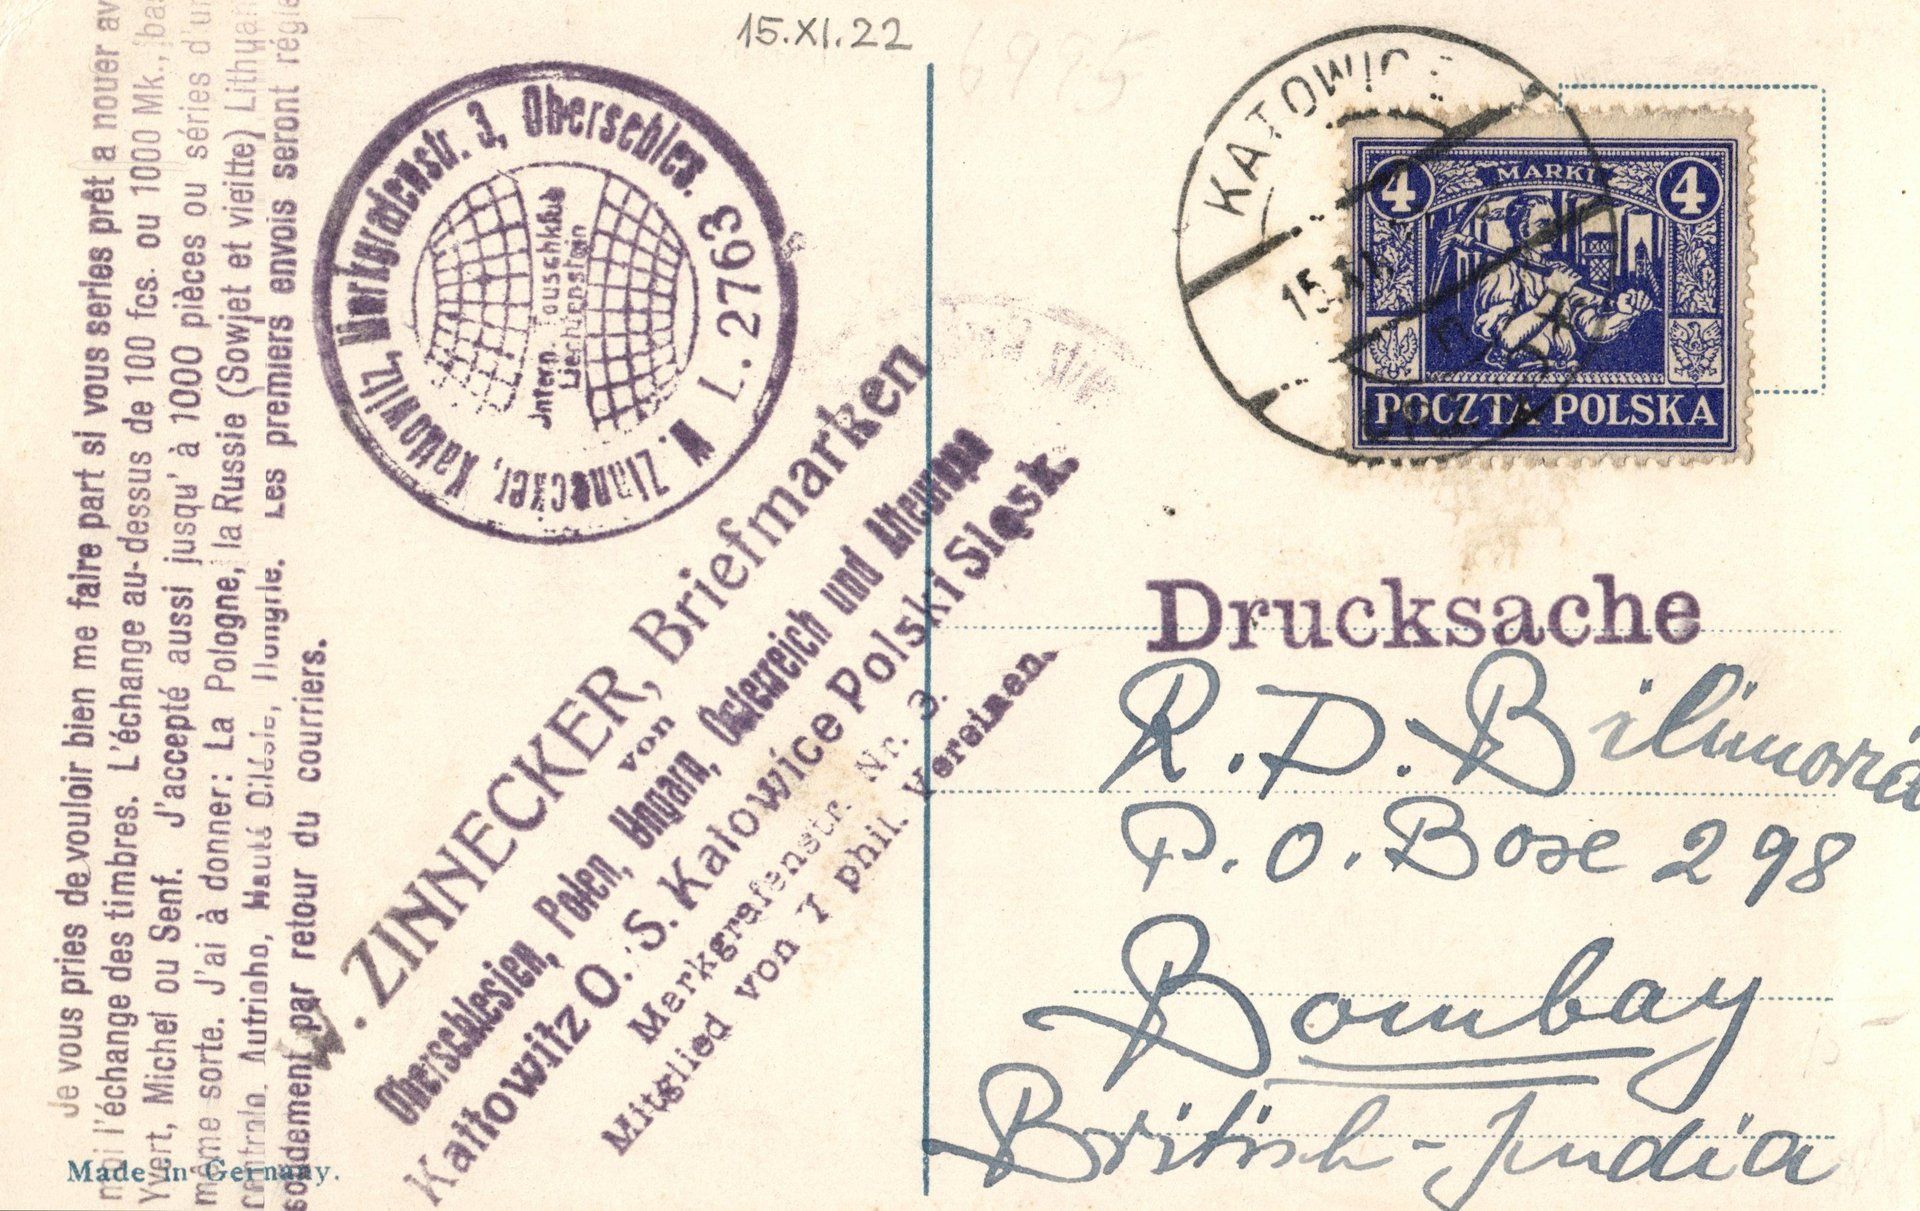 15.XI.22
6995
Je vous pries de vouloir bien me faire part si vous series prêt a nouer av
moi l'échange des timbres. L'échange au-dessus de 100 fcs. ou 1000 Mk., bas
Yvert, Michel ou Senf. J'accepté aussi jusqu' à 1000 pièces ou séries d'un
même sorte. J'ai à donner: La Pologne, la Russie (Sowjet et vieitte) Lithuan
centrale, Autriche, Hauté Silésie, Hongrie. Les premiers envois seront régle
soudement par retour du courriers.
W. Zinnecker, Kattowitz, Markgrafenstr. 3, Oberschles.
L. 2763
Intern. Tauschklub
Liechtenstein
W. ZINNECKER, Briefmarken
von
Oberschlesien, Polen, Ungarn, Oesterreich und Alteuropa
Kattowitz O. S. Katowice Polski Sląsk.
Markgrafenstr. Nr. 3.
Mitglied von 7 phil. Vereinen.
Made in Germany.
KATOWICE
15.XI.
4 MARKI 4
POCZTA POLSKA
Drucksache
R. D. Bilimoria
P. O. Boxe 298
Bombay
British-India